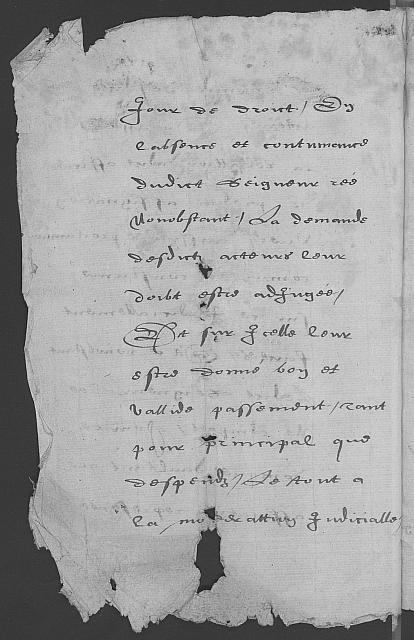 Jour de droict / En
l'absence et contumance
dudict Seigneur réé
Nonobstant / La demande
desdicts acteurs leur
doibt estre adjugée /
Et sur Jcelle leur
estre donné bon et
vallide passement / tant
pour principal que
despendz / Le tout a
la moderattion Judicialle /